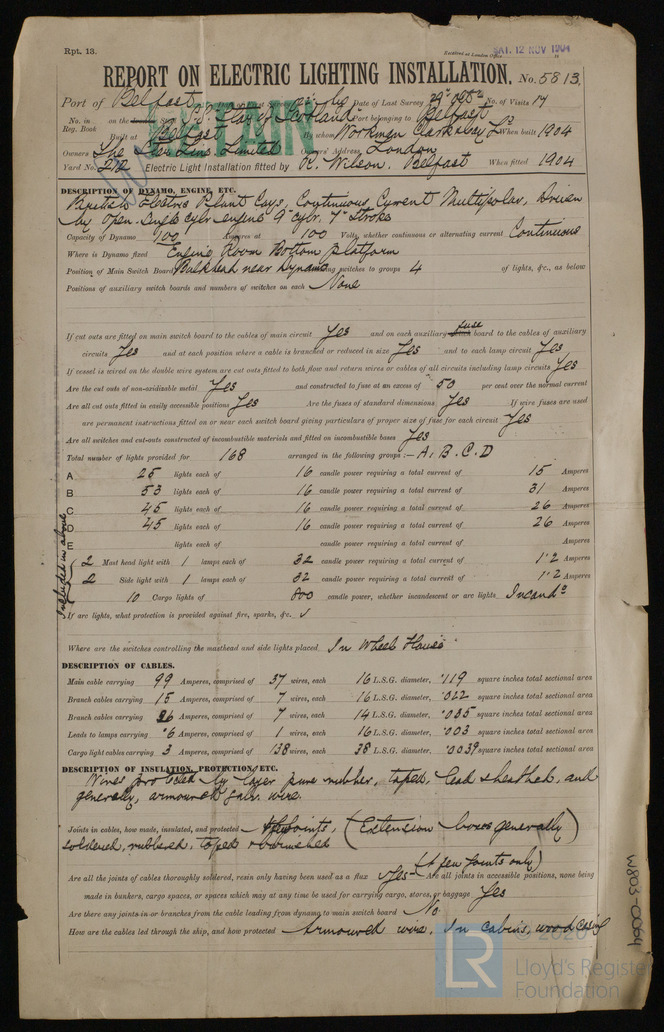 Rpt. 13.
Received at London Office SAT. 12 NOV 1904
REPORT ON ELECTRIC LIGHTING INSTALLATION. No. 5813.
Port of Belfast Date of Last Survey No. of Visits 17
No. in Reg. Book on the S.S. Star of Scotland Port belonging to Belfast
Built at Belfast By whom Workman Clark & Co Ld When built 1904
Owners The Star Line Limited Owners' Address London
Yard No. 212 Electric Light Installation fitted by R. Wilson, Belfast When fitted 1904
RETAIN
DESCRIPTION OF DYNAMO, ENGINE, ETC.
Electric Plant Coys, Continuous Current Multipolar, Driven
by open single cylr engine 9" cylr. 7" Stroke
Capacity of Dynamo 100 Amperes at 100 Volts, whether continuous or alternating current Continuous
Where is Dynamo fixed Engine Room Bottom platform
Position of Main Switch Board Bulkhead near Dynamo switches to groups 4 of lights, &c., as below
Positions of auxiliary switch boards and numbers of switches on each None
If cut outs are fitted on main switch board to the cables of main circuit Yes and on each auxiliary fuse board to the cables of auxiliary
circuits Yes and at each position where a cable is branched or reduced in size Yes and to each lamp circuit Yes
If vessel is wired on the double wire system are cut outs fitted to both flow and return wires or cables of all circuits including lamp circuits Yes
Are the cut outs of non-oxidizable metal Yes and constructed to fuse at an excess of 50 per cent over the normal current
Are all cut outs fitted in easily accessible positions Yes Are the fuses of standard dimensions Yes If wire fuses are used
are permanent instructions fitted on or near each switch board giving particulars of proper size of fuse for each circuit Yes
Are all switches and cut-outs constructed of incombustible materials and fitted on incombustible bases Yes
Total number of lights provided for 168 arranged in the following groups :— A. B. C. D
A 25 lights each of 16 candle power requiring a total current of 15 Amperes
B 53 lights each of 16 candle power requiring a total current of 31 Amperes
C 45 lights each of 16 candle power requiring a total current of 26 Amperes
D 45 lights each of 16 candle power requiring a total current of 26 Amperes
E lights each of candle power requiring a total current of Amperes
Included in above
2 Mast head light with 1 lamps each of 32 candle power requiring a total current of 1·2 Amperes
2 Side light with 1 lamps each of 32 candle power requiring a total current of 1·2 Amperes
10 Cargo lights of 800 candle power, whether incandescent or arc lights Incand
If arc lights, what protection is provided against fire, sparks, &c. ✓
Where are the switches controlling the masthead and side lights placed In Wheel House
DESCRIPTION OF CABLES.
Main cable carrying 99 Amperes, comprised of 37 wires, each 16 L.S.G. diameter, ·119 square inches total sectional area
Branch cables carrying 15 Amperes, comprised of 7 wires, each 16 L.S.G. diameter, ·022 square inches total sectional area
Branch cables carrying 26 Amperes, comprised of 7 wires, each 14 L.S.G. diameter, ·035 square inches total sectional area
Leads to lamps carrying ·6 Amperes, comprised of 1 wires, each 16 L.S.G. diameter, ·003 square inches total sectional area
Cargo light cables carrying 3 Amperes, comprised of 138 wires, each 38 L.S.G. diameter, ·0039 square inches total sectional area
DESCRIPTION OF INSULATION, PROTECTION, ETC.
Wires protected by layer pure rubber, taped, lead sheathed, and
generally, armoured galv. wire.
Joints in cables, how made, insulated, and protected Joints, (Extension boxes generally)
soldered, rubbered, taped & varnished
(A few joints only)
Are all the joints of cables thoroughly soldered, resin only having been used as a flux Yes Are all joints in accessible positions, none being
made in bunkers, cargo spaces, or spaces which may at any time be used for carrying cargo, stores, or baggage Yes
Are there any joints in or branches from the cable leading from dynamo to main switch board No
How are the cables led through the ship, and how protected Armoured wire, In cabins, wood casing
W803-0064
LR © 2020 Lloyd's Register Foundation